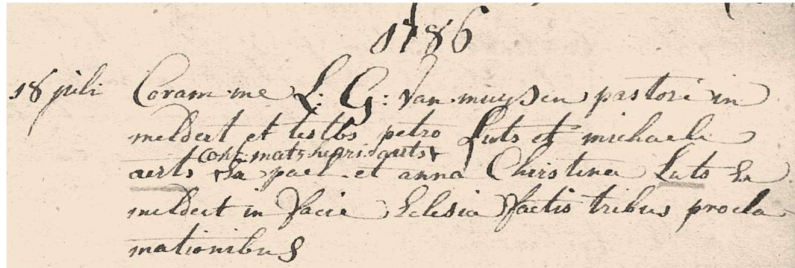 1786
18 juli Coram me L: G: Van muysen pastore in
meldert et testbs petro Luts et michaele
aerts
aerts pael et anna Christina Luts Ex
meldert in facie Eclesia factis tribus procla
mationibus